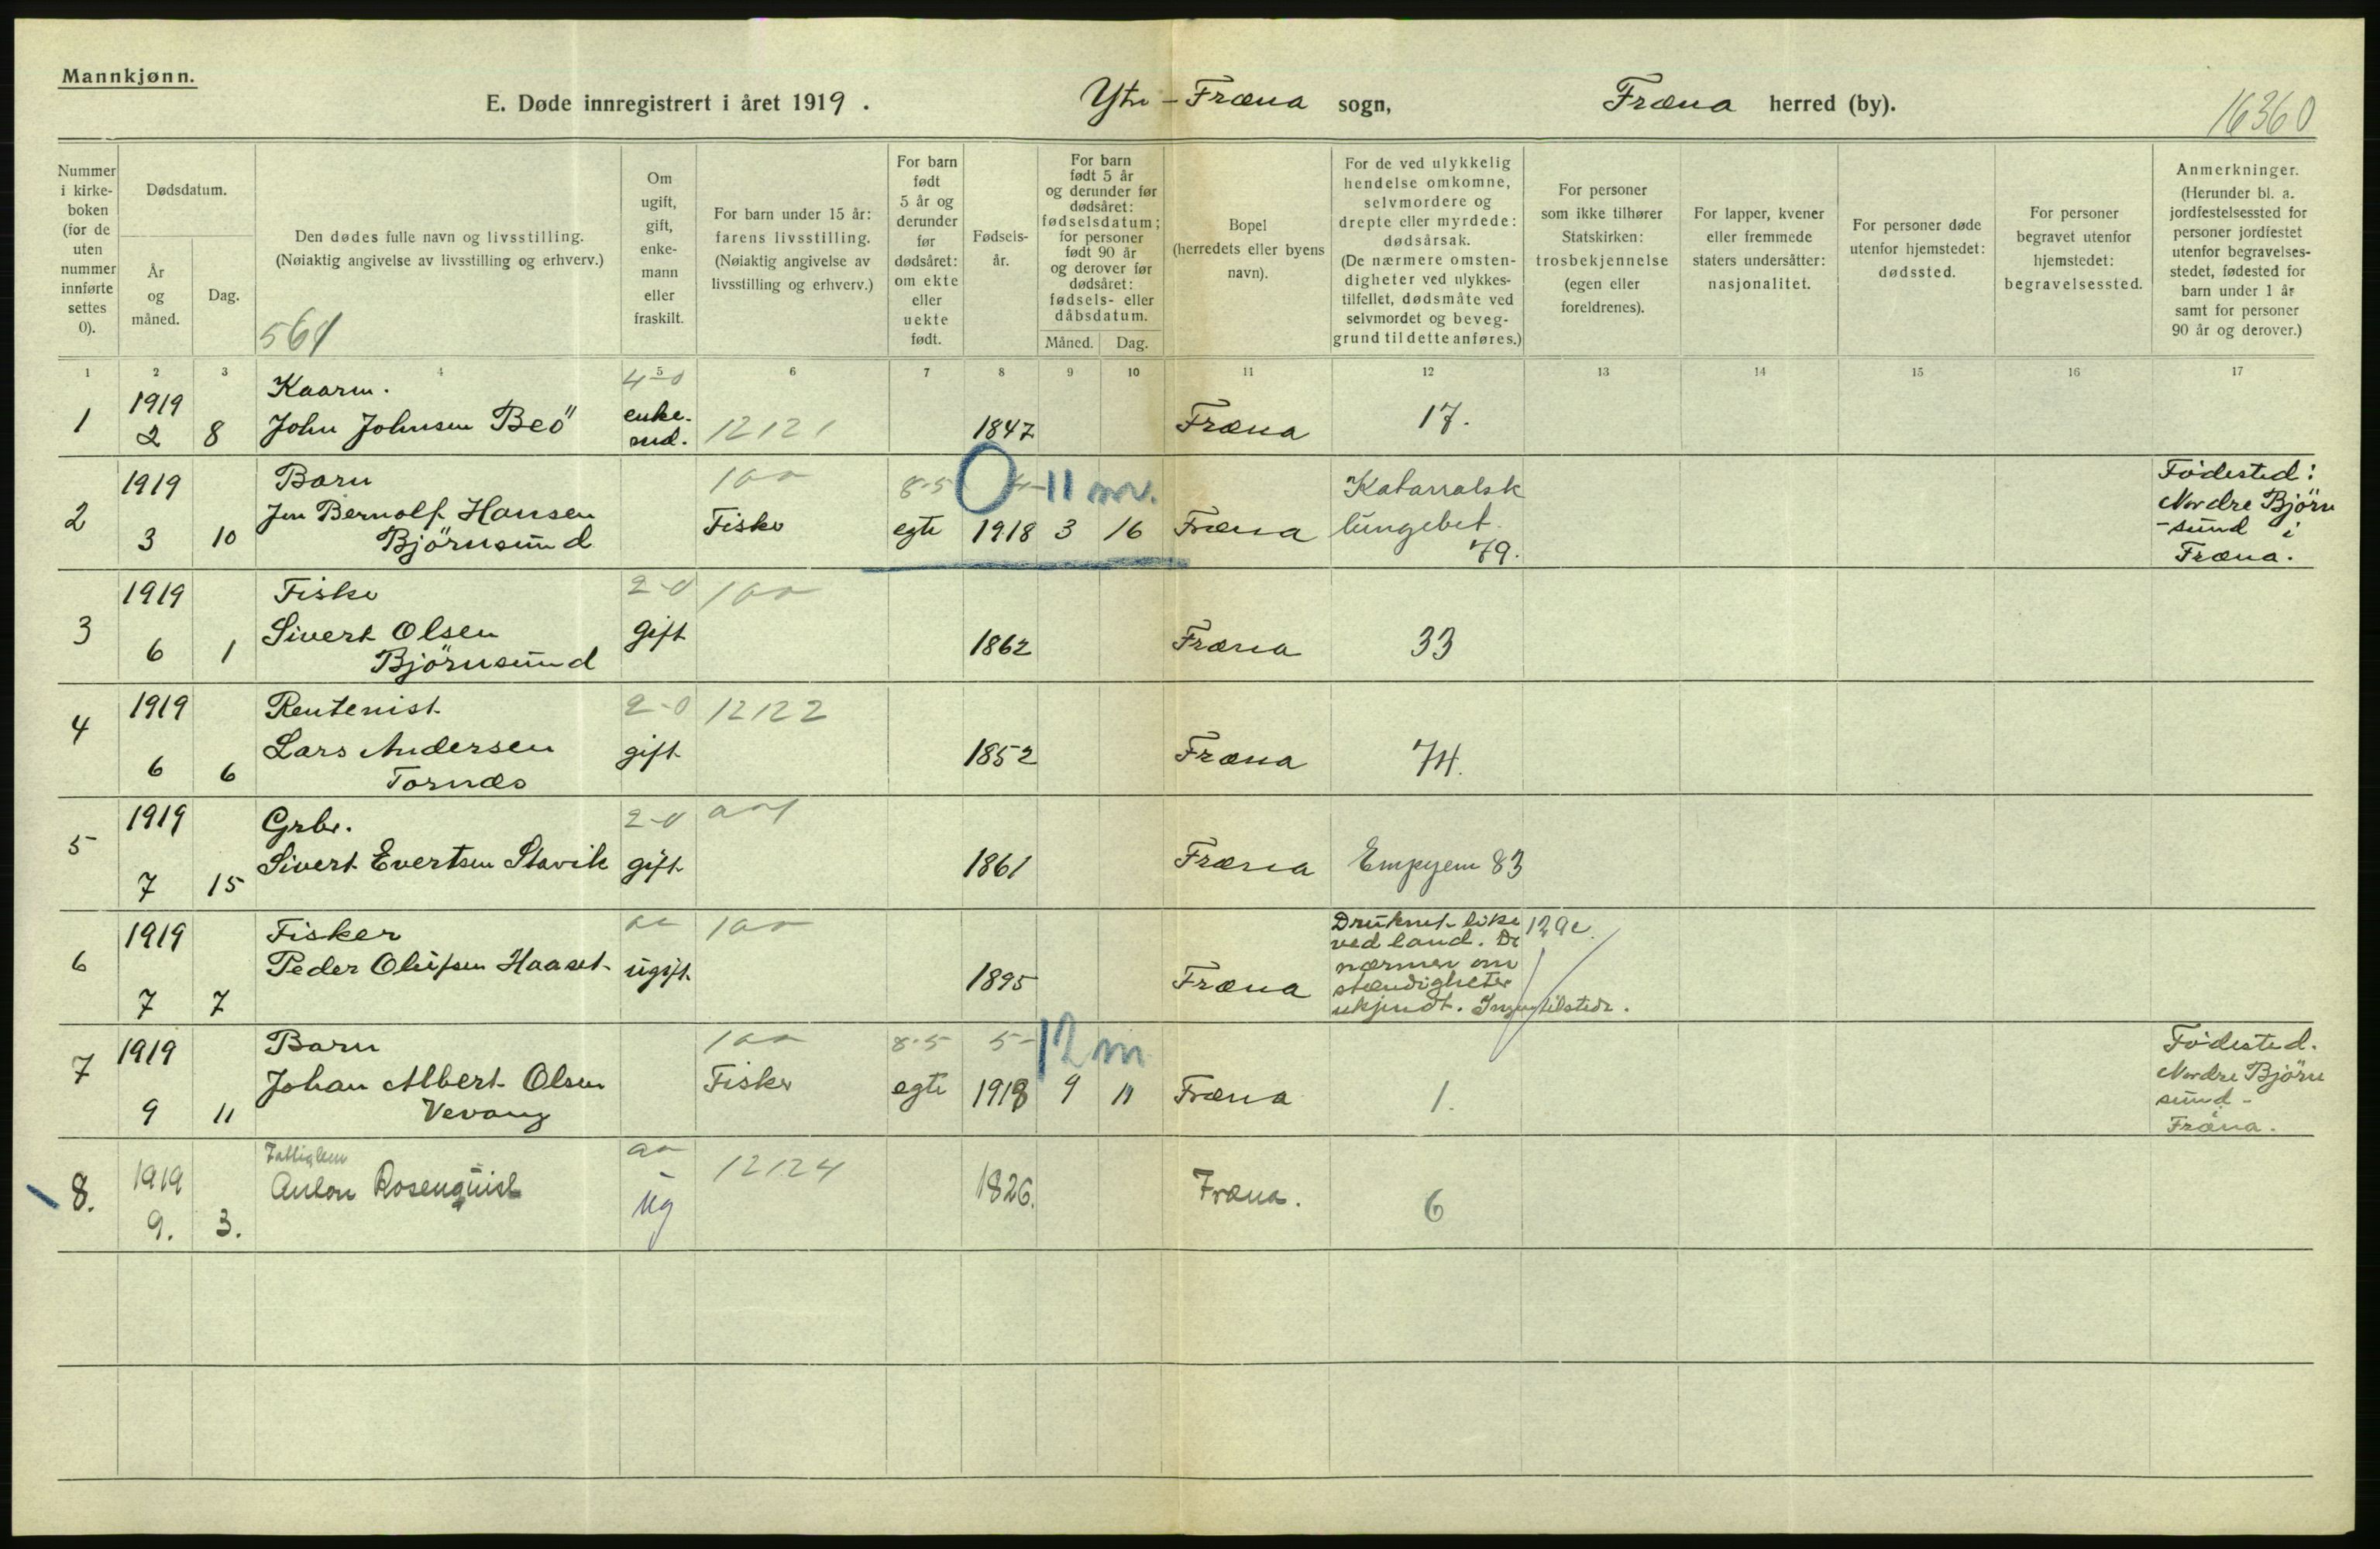 Mannkjønn.
E. Døde innregistrert i året 1919. Ytre-Fræna sogn, Fræna herred (by). 16360
Nummer i kirke- boken (for de uten nummer innførte settes 0).
Dødsdatum.
År og måned.
Dag.
Den dødes fulle navn og livsstilling.
(Nøiaktig angivelse av livsstilling og erhverv.)
561
Om ugift, gift, enke- mann eller fraskilt.
For barn under 15 år: farens livsstilling. (Nøiaktig angivelse av livsstilling og erhverv.)
For barn født 5 år og derunder før dødsåret: om ekte eller uekte født.
Fødsels- år.
For barn født 5 år og derunder før dødsåret: fødselsdatum; for personer født 90 år og derover før dødsåret: fødsels- eller dåbsdatum.
Måned. Dag.
Bopel (herredets eller byens navn).
For de ved ulykkelig hendelse omkomne, selvmordere og drepte eller myrdede: dødsårsak. (De nærmere omsten- digheter ved ulykkes- tilfellet, dødsmåte ved selvmordet og beveg- grund til dette anføres.)
For personer som ikke tilhører Statskirken: trosbekjennelse (egen eller foreldrenes).
For lapper, kvener eller fremmede staters undersåtter: nasjonalitet.
For personer døde utenfor hjemstedet: dødssted.
For personer begravet utenfor hjemstedet: begravelsessted.
Anmerkninger. (Herunder bl. a. jordfestelsessted for personer jordfestet utenfor begravelses- stedet, fødested for barn under 1 år samt for personer 90 år og derover.)
1 2 3 4 5 6 7 8 9 10 11 12 13 14 15 16 17
Kaarm. 4-0
1 1919 2 8 John Johnsen Beö enke- md. 12121 1847 Fræna 17.
1919 Barn 100 8-5 0 4-11 mv. Katarralsk Födested:
2 3 10 Jen Bernolf Hansen Björnsund Fisker egte 1918 3 16 Fræna lungebet. 79. Nordre Björn -sund i Fræna.
1919 Fisker 2-0 100
3 6 1 Sivert Olsen Björnsund gift 1862 Fræna 33
1919 Rentenist 2-0 12122
4 6 6 Lars Andersen Tornæs gift 1852 Fræna 74.
1919 Grbr. 2-0
5 7 15 Sivert Evertsen Stavik gift 1861 Fræna Empyem 83
1919 Fisker 100 Druknet like 129e.
6 7 7 Peder Olufsen Haaset ugift 1895 Fræna ved land. De nærmere om stændigheter ukjendt. Ingen tilstede.
1919 Barn 100 8-5 5- 12 m Födested.
7 9 11 Johan Albert Olsen Vevang Fisker egte 1918 9 11 Fræna 1. Nordre Björn sund - i Fræna.
Fattiglem
8. 1919 9. 3. Anton Rosenquist ug 12124 1826. Fræna. 6